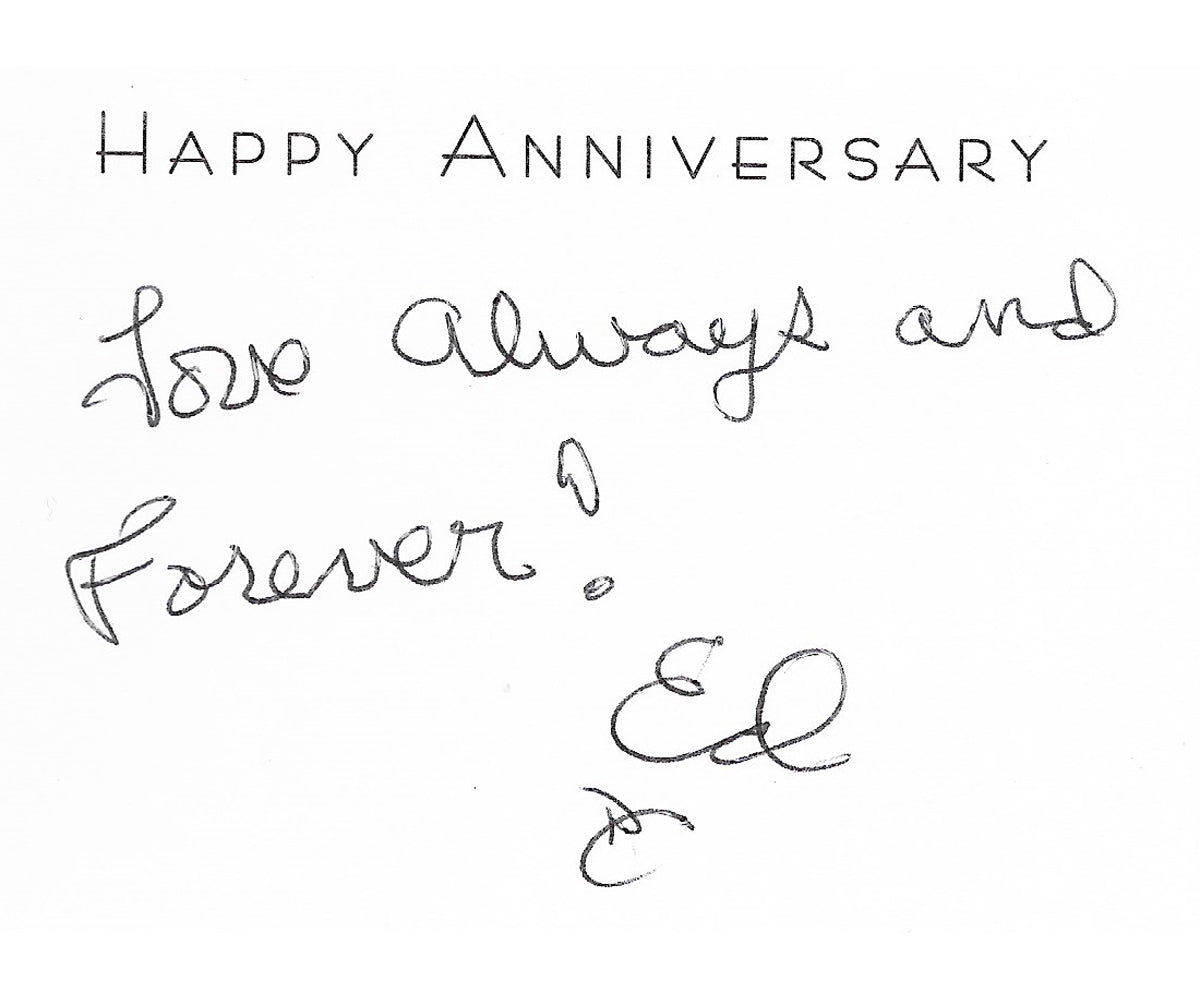 HAPPY ANNIVERSARY
Love Always and
Forever!
Ed